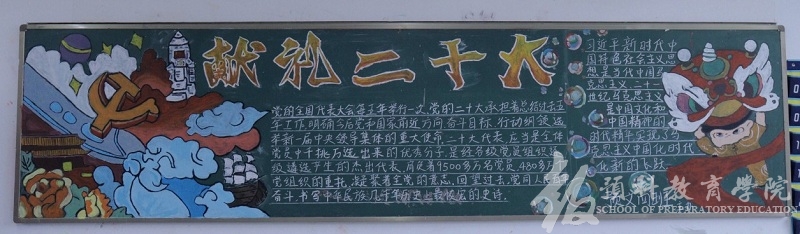 献礼二十大
党的全国代表大会每五年举行一次，党的二十大承担着总结过去五
年工作、明确今后党和国家前进方向、奋斗目标、行动纲领、选
举新一届中央领导集体的重大使命。二十大代表，应当是全体
党员中千挑万选出来的优秀分子，是经各级党员组织逐
级遴选产生的杰出代表，肩负着9500多万名党员、480多万
党组织的重托，凝聚着全党的意志，回望过去，党同人民
奋斗，书写中华民族几千年历史上最恢宏的史诗。
习近平新时代中
国特色社会主义思
想是当代中国马
克思主义、二十一
世纪马克思主义
是中国文化和
中国精神的
时代精华，实现了马
克思主义中国化时代
化新的飞跃。
预科教育学院
SCHOOL OF PREPARATORY EDUCATION